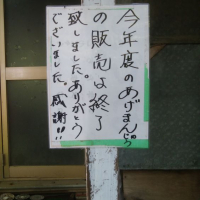 今年度のあげまんじゅう
の販売は終了
致しました。ありがとう
ございました。感謝!!